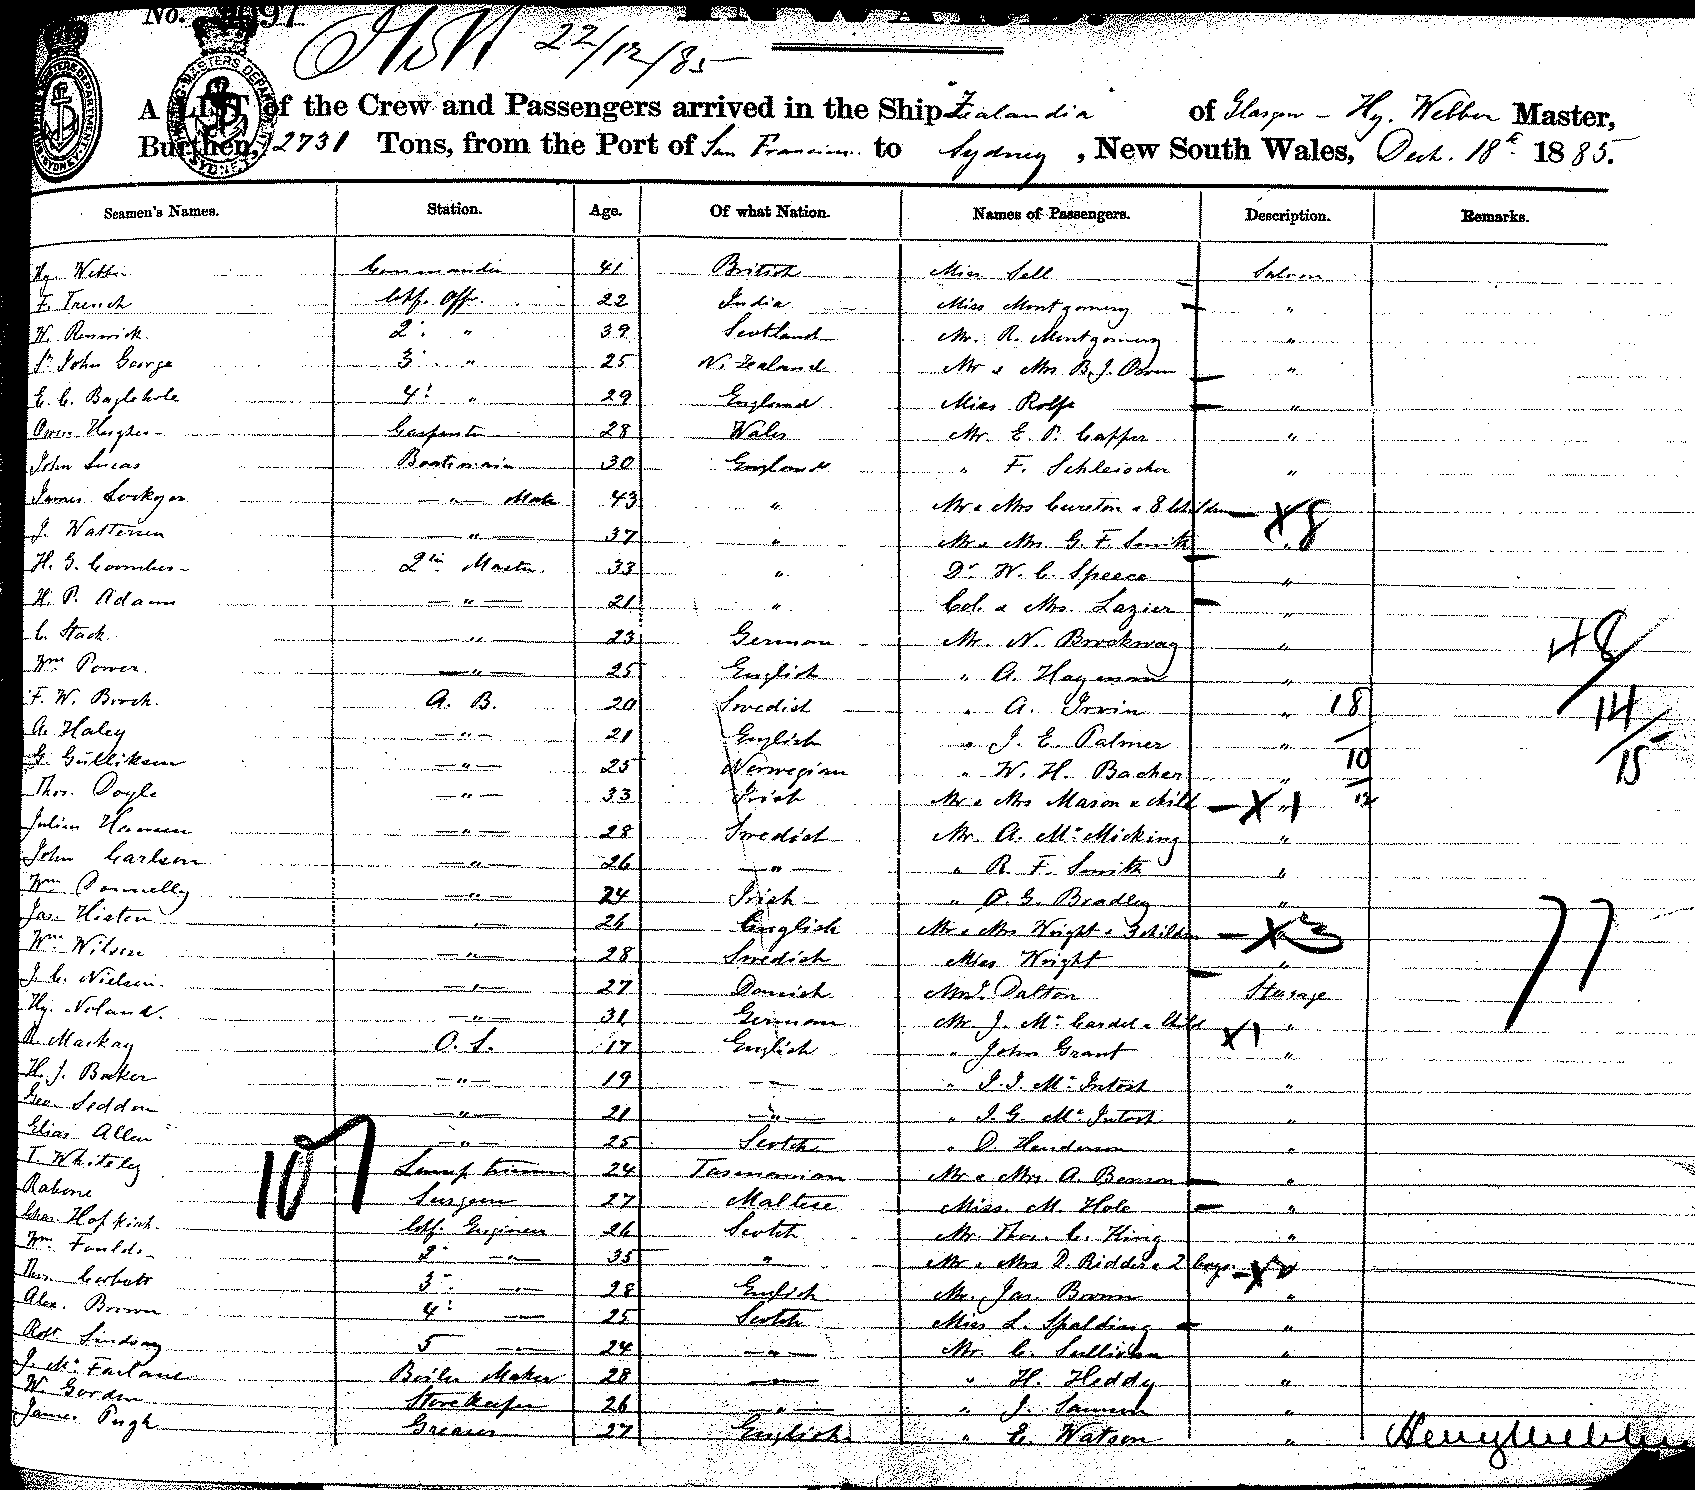 No. 97
INWARD.
22/12/85
A LIST of the Crew and Passengers arrived in the Ship "Zealandia" of Glasgow - Hy. Webber Master,
Burthen, 2731 Tons, from the Port of San Francisco to Sydney, New South Wales, Dech. 18th 1885.
Seamen's Names. Station. Age. Of what Nation. Names of Passengers. Description. Remarks.
Hy. Webber Commander 41 British Miss Sell Saloon
F. French Chf. Off. 22 India Miss Montgomery "
W. Renwick 2d. " 39 Scotland Mr. R. Montgomery "
St John George 3d. " 25 N. Zealand Mr & Mrs B. J. "
E. C. Baglehole 4th " 29 England Miss Rolfe "
Owen Hughes Carpenter 28 Wales Mr. E. P. Capper "
John Lucas Boatswain 30 England " F. Schleischer "
James Lockyer " Mate 43 " Mr & Mrs Cureton & 8 Children X8
J. Watterson " 37 " Mr & Mrs G. F. Smith "
H. G. Coombes 2tr Master 33 " Dr. W. C. Speece "
H. P. Adams " 21 " Col. & Mrs. Lazier "
C. Stack " 23 German Mr. N. Brockway "
Wm Power " 25 English " A. Hayman " 48
F. W. Brock A. B. 20 Swedish " A. Irvin " 18 14
A. Haley " 21 English " J. E. Palmer " 10 15
G. Gulliksen " 25 Norwegian " W. H. Bacher "
Thos. Doyle " 33 Irish Mr & Mrs Mason & child X " 1 12
Julius Hansen " 28 Swedish Mr. A. McMicking "
John Carlson " 26 " " R. F. Smith "
Wm Donnelly " 24 Irish " O. G. Bradley "
Jas. Histon " 26 English Mr & Mrs Wright & 3 children X 3 77
Wm Wilson " 28 Swedish Miss Wright "
J. C. Nielsen " 27 Danish Dalton Sterage
Hy. Noland. " 31 German Mr J. McCardel & Child X1 "
R. Mackay O. S. 17 English " John Grant "
H. J. Baker " 19 " " J. J. McIntosh "
Geo Seddon " 21 " " J. G. McIntosh "
Elias Allen " 25 Scotch " D. Henderson "
T. Whiteley Lamp trimmer 24 Tasmanian Mr & Mrs A. Benson "
107
Rabone Surgeon 27 Maltese Miss. M. Hole "
Chas. Hopkirk. Chf. Engineer 26 Scotch Mr. Thos. C. King "
Wm. Foulds 2d " 35 " Mr & Mrs D. Ridder & 2 boys X2
Thos. Corbett 3d. " 28 English Mr. Jas. Brown "
Alex. Brown 4th " 25 Scotch Miss L. Spalding "
Robt Lindsay 5 " 24 " Mr. C. Sullivan "
J. McFarlane Boiler Maker 28 " " H. Heddy "
W. Gordon Storekeeper 26 " " J. "
James Pugh Greaser 27 English " C. Watson "
Henry Webber